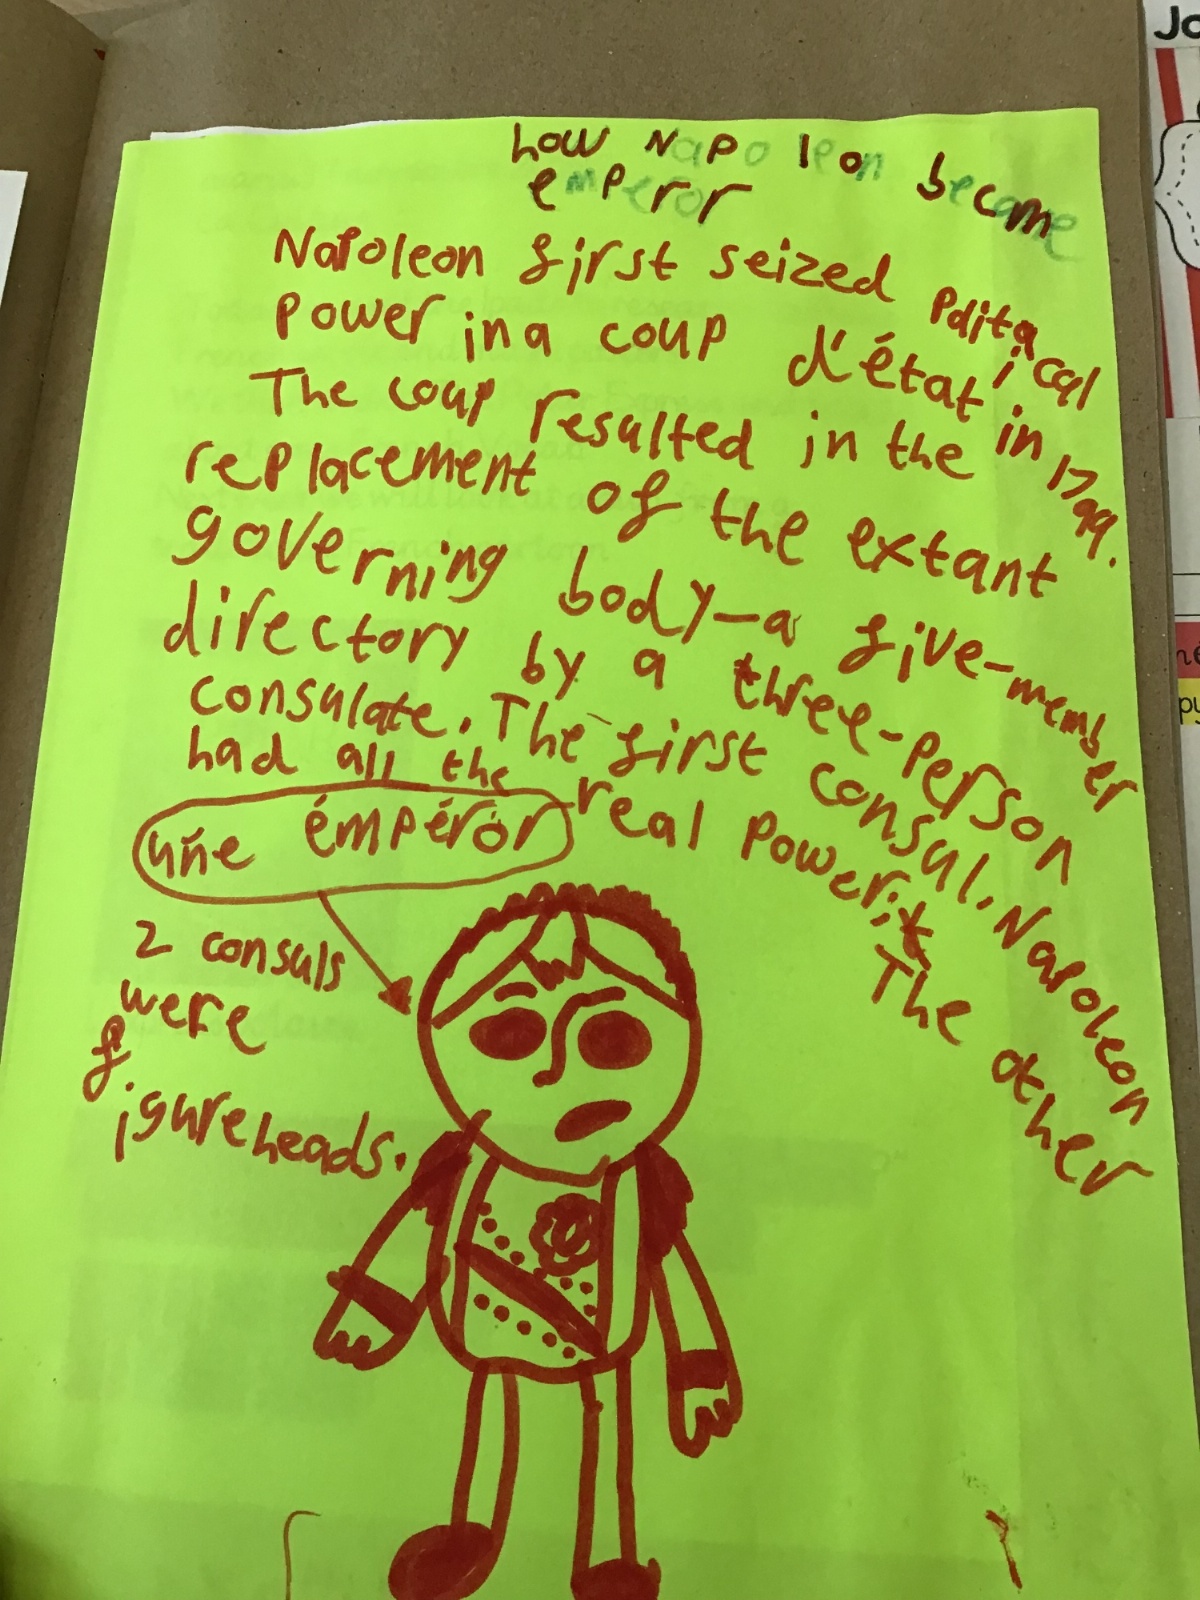 how Napoleon became
emperor
Napoleon first seized politaical
power in a coup d'état in 1799.
The coup resulted in the
replacement of the extant
governing body—a five-member
directory by a three-person
consulate. The first consul, Napoleon
had all the real power; The other
une émpéror
2 consuls
were
figureheads.
Jo